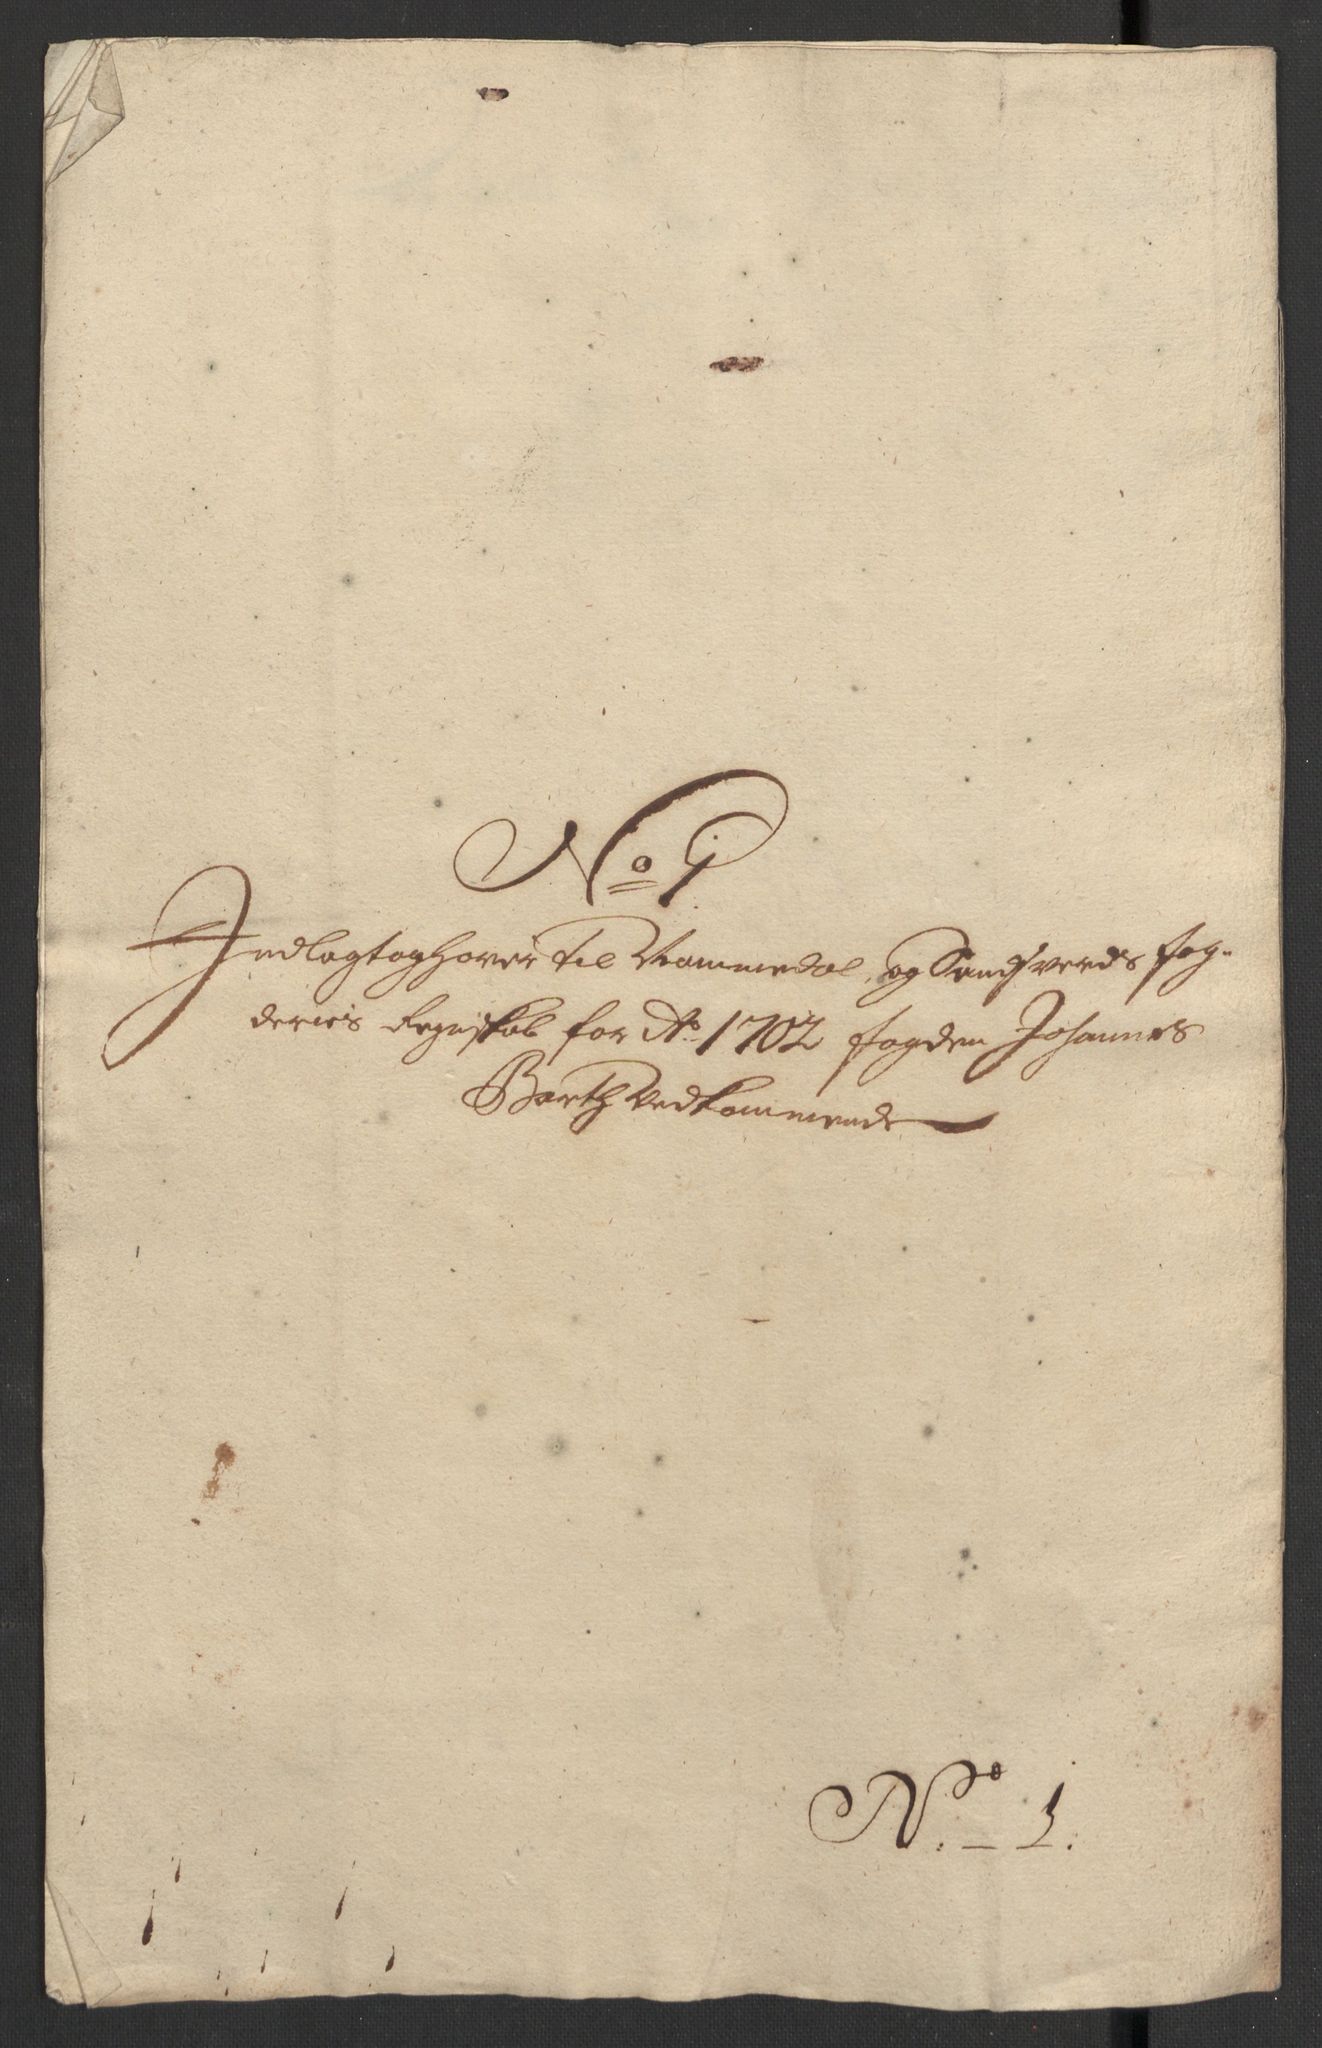 No 1
Indlagt og hører til Nommedal, og Sandsverds fog-
deries Regnskab for Ao 1702 fogden Johannes
Barth Vedkommende
No. 1.